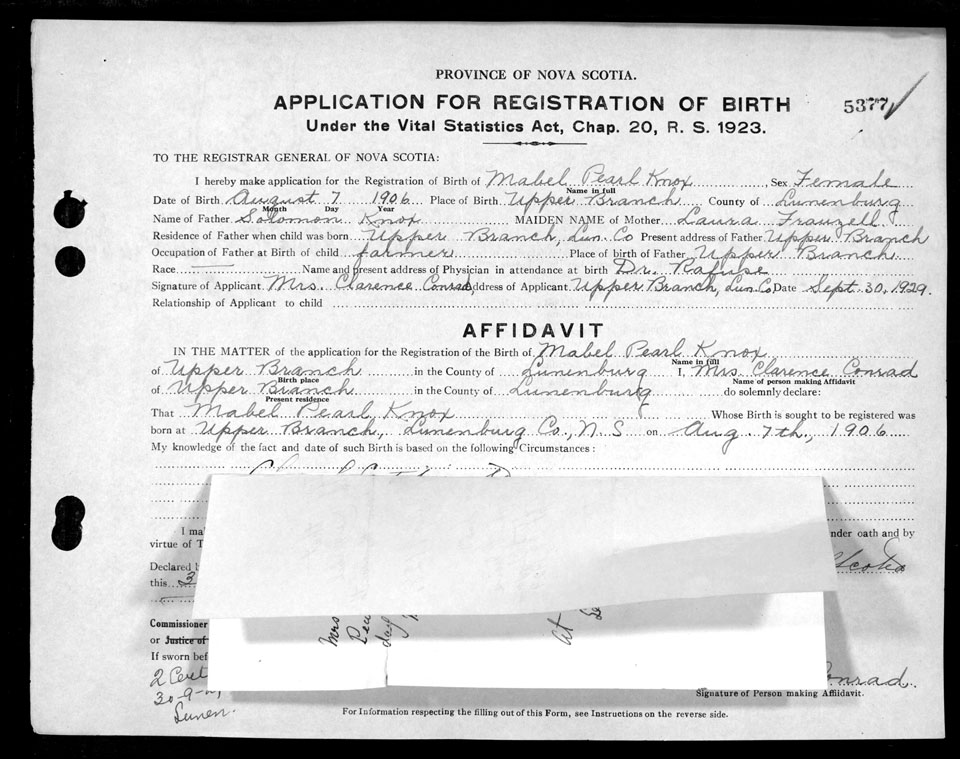 PROVINCE OF NOVA SCOTIA.
APPLICATION FOR REGISTRATION OF BIRTH 5377
Under the Vital Statistics Act, Chap. 20, R. S. 1923.
TO THE REGISTRAR GENERAL OF NOVA SCOTIA:
I hereby make application for the Registration of Birth of Mabel Pearl Knox, Sex Female
Name in full
Date of Birth August 7 1906 Place of Birth Upper Branch County of Lunenburg
Month Day Year
Name of Father Solomon Knox MAIDEN NAME of Mother Laura
Residence of Father when child was born Upper Branch, Lun. Co Present address of Father Upper Branch
Occupation of Father at Birth of child farmer Place of birth of Father Upper Branch
Race — Name and present address of Physician in attendance at birth Dr. Rafuse
Signature of Applicant Mrs. Clarence Conrad, Address of Applicant Upper Branch, Lun. Co, Date Sept. 30, 1929.
Relationship of Applicant to child
AFFIDAVIT
IN THE MATTER of the application for the Registration of the Birth of Mabel Pearl Knox
Name in full
of Upper Branch in the County of Lunenburg I, Mrs Clarence Conrad
Birth place Name of person making Affidavit
of Upper Branch in the County of Lunenburg do solemnly declare:
Present residence
That Mabel Pearl Knox Whose Birth is sought to be registered was
born at Upper Branch, Lunenburg Co., N. S on Aug. 7th., 1906
My knowledge of the fact and date of such Birth is based on the following Circumstances:
I ma
nder oath and by
virtue of T
Declared
this 3
Commissioner
or Justice of
If sworn bef
Mrs
day
at
2 Cert
30-9-
Lunen.
onrad.
Signature of Person making Affidavit.
For Information respecting the filling out of this Form, see Instructions on the reverse side.